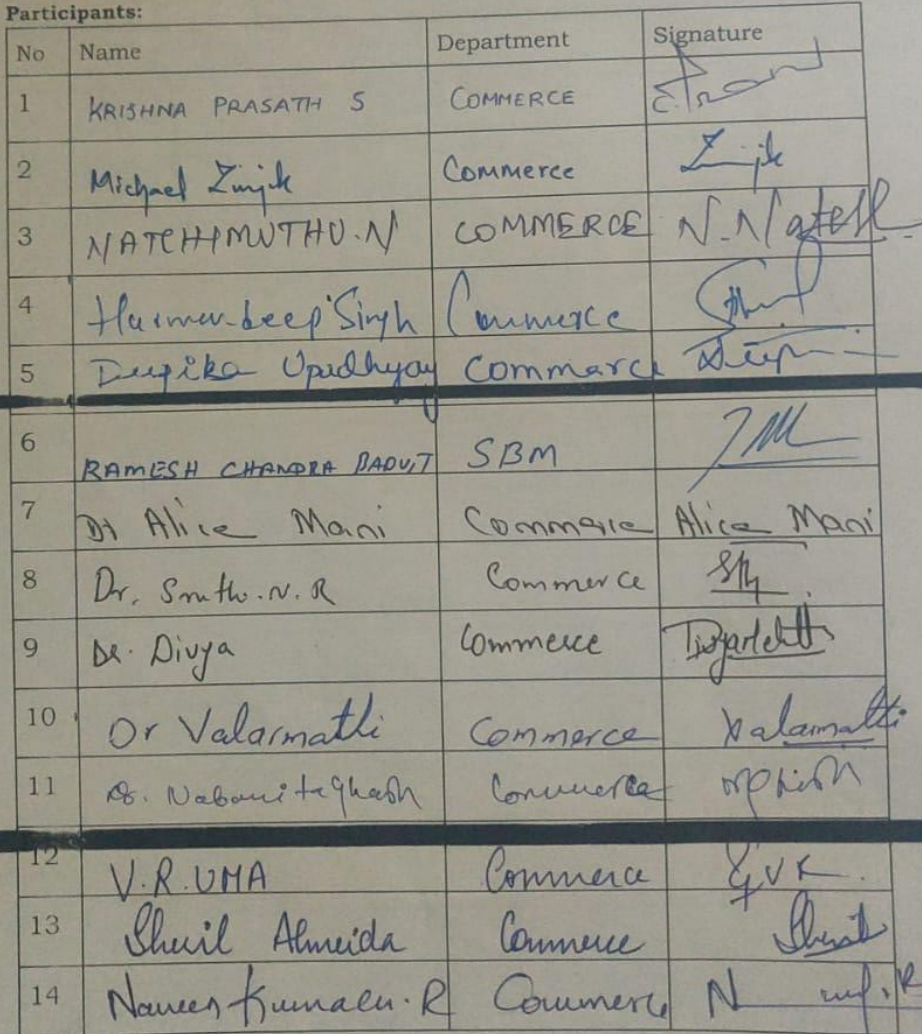 Participants:
No Name Department Signature
1 KRISHNA PRASATH S COMMERCE
2 Michael Zimik Commerce Zik
3 NATCHIMUTHU.N COMMERCE N.N
4 Harmandeep Singh Commerce
5 Deepika Upadhyay Commerce
6 RAMESH CHANDRA SBM
7 Dr Alice Mani Commerce Alice Mani
8 Dr. Smitha.N.R Commerce
9 Dr. Divya Commerce
10 Dr Valarmathi Commerce Valarmathi
11 Dr. Nabanita Ghosh Commerce
12 V.R.UMA Commerce
13 Sheril Almeida Commerce Sheril
14 Naveen Kumara.R Commerce N